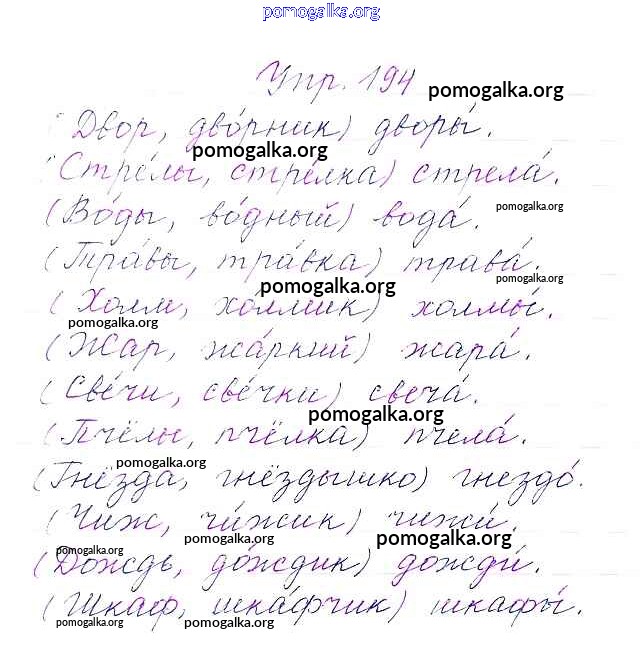 pomogalka.org
Упр. 194
pomogalka.org
(Двор, дво́рник) дворы́.
pomogalka.org
(Стре́лы, стре́лка) стрела́.
(Во́ды, во́дный) вода́.
pomogalka.org
(Тра́вы, тра́вка) трава́.
pomogalka.org
pomogalka.org
(Холм, хо́лмик) холмы́.
pomogalka.org
(Жар, жа́ркий) жара́.
(Све́чи, све́чки) свеча́.
pomogalka.org
(Пчёлы, пчёлка) пчела́.
pomogalka.org
(Гнёзда, гнёздышко) гнездо́.
(Чиж, чи́жик) чижи́.
pomogalka.org pomogalka.org pomogalka.org
(Дождь, до́ждик) дожди́.
(Шкаф, шка́фчик) шкафы́.
pomogalka.org pomogalka.org